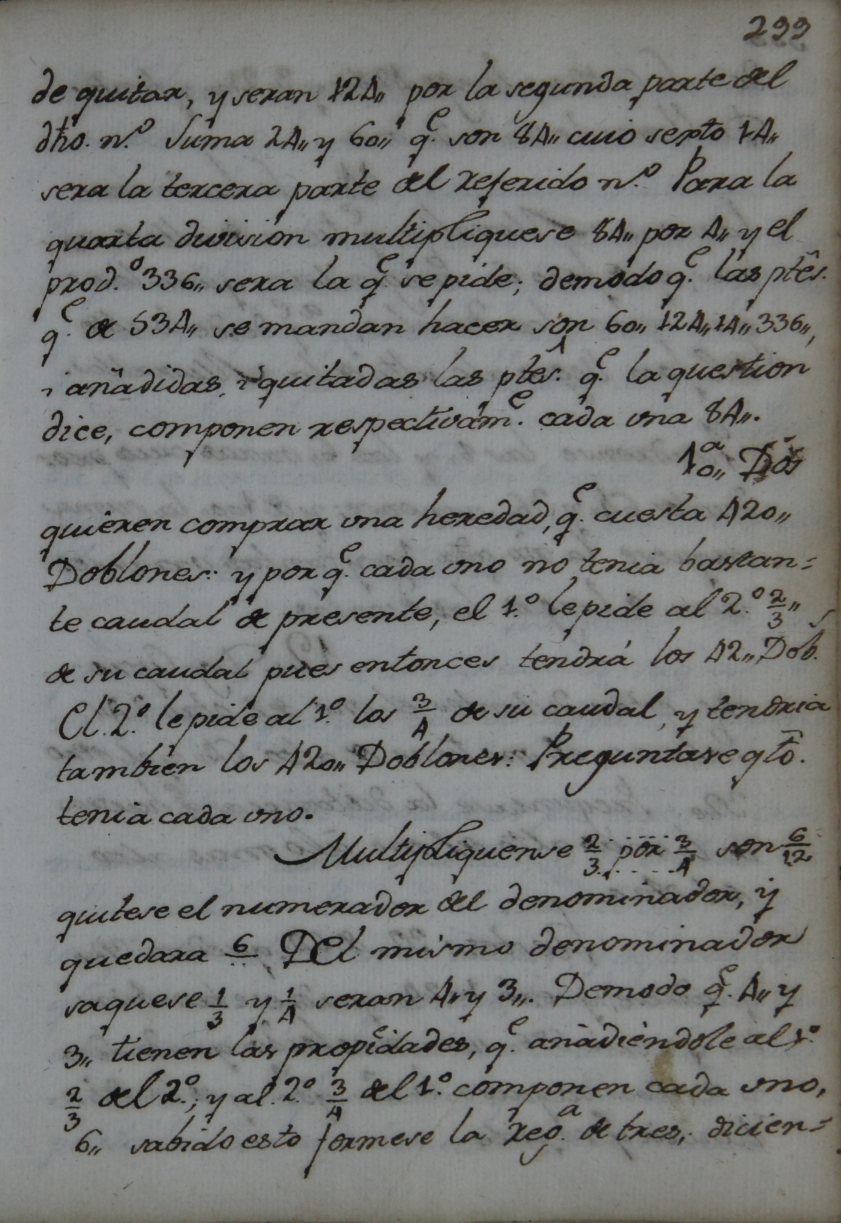 299
de quitar, y seran 124,, por la segunda parte del
dho. n.º Suma 24,, y 60,, q.e son 84,, cuio sexto 14,,
sera la tercera parte del referido n.º Para la
quarta division multipliquese 84,, por 4,, y el
prod.º 336,, sera la q.e se pide; demodo q.e las ptês.
q.e de 534,, se mandan hacer son 60,, 124,, 14,, 336,,,
i añadidas, i quitadas las ptês. q.e la question
dice, componen respectivam.e cada una 84,,.
1ª 0,, Dos
quieren comprar una heredad, q.e cuesta 420,,
Doblones: y por q.e cada uno no tenia bastan=
te caudal de presente, el 1.º le pide al 2.º 2/3,,
de su caudal pues entonces tendrá los 42,, Dob.s
El 2.º le pide al 1.º los 3/4 de su caudal, y tendria
tambien los 420,, Doblones: Preguntase qtô.
tenia cada uno.
Multipliquense 2/3 por 3/4 son 6/12
quitese el numerador del denominador, y
quedara 6 Del mismo denominador
saquese 1/3 y 1/4 seran 4,, y 3,,. Demodo q.e 4,, y
3,, tienen las propiedades, q.e añadiendole al 1º
2/3 del 2.º; y al 2.º 3/4 del 1.º componen cada uno,
6,, sabido esto formese la reg.a de tres, dicien=